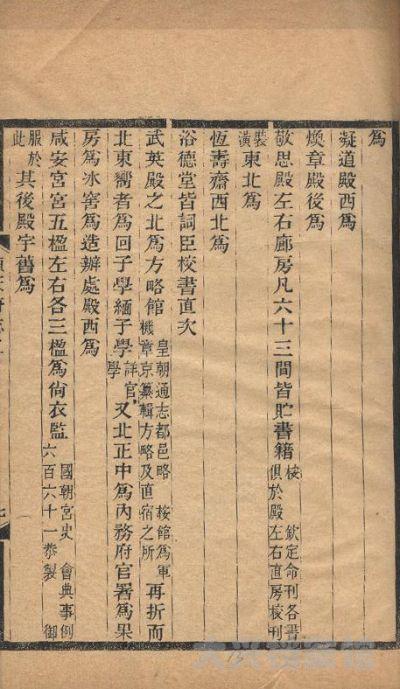 為
凝道殿西為
煥章殿後為
敬思殿左右廊房凡六十三間皆貯書籍 按 欽定命刊各書俱於殿左右直房校刊
裝潢 東北為
恆壽齋西北為
浴德堂皆詞臣校書直次
武英殿之北為方略館 皇朝通志都邑略 按館為軍機章京纂輯方略及直宿之所 再折而
北東嚮者為回子學緬子學 詳官學 又北正中為內務府官署為果
房為冰窖為造辦處殿西為
咸安宮宮五楹左右各三楹為尚衣監 國朝宮史 會典事例六百六十一恭製 御
服於此 其後殿宇舊為